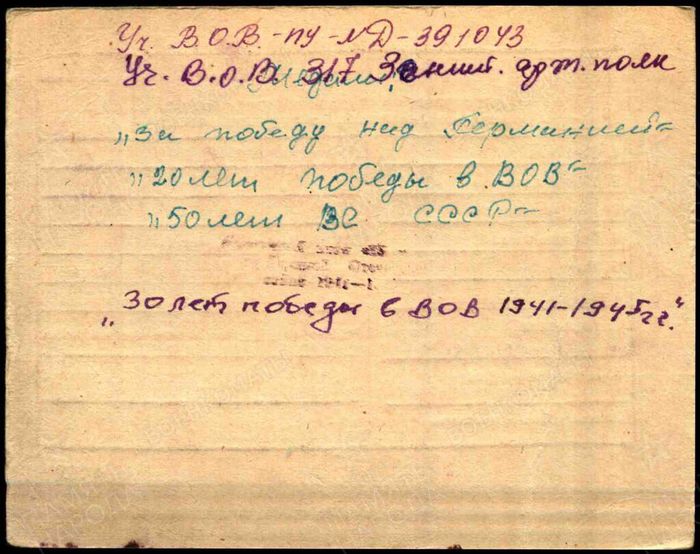 Уч. В.О.В.-ПУ-№Д-391043
Уч. В.О.В. 317 Зенит. арт. полк
Медали:
„За победу над Германией“
„20 лет победы в ВОВ“
„50 лет ВС СССР“
„30 лет победы в ВОВ 1941-1945 гг.“